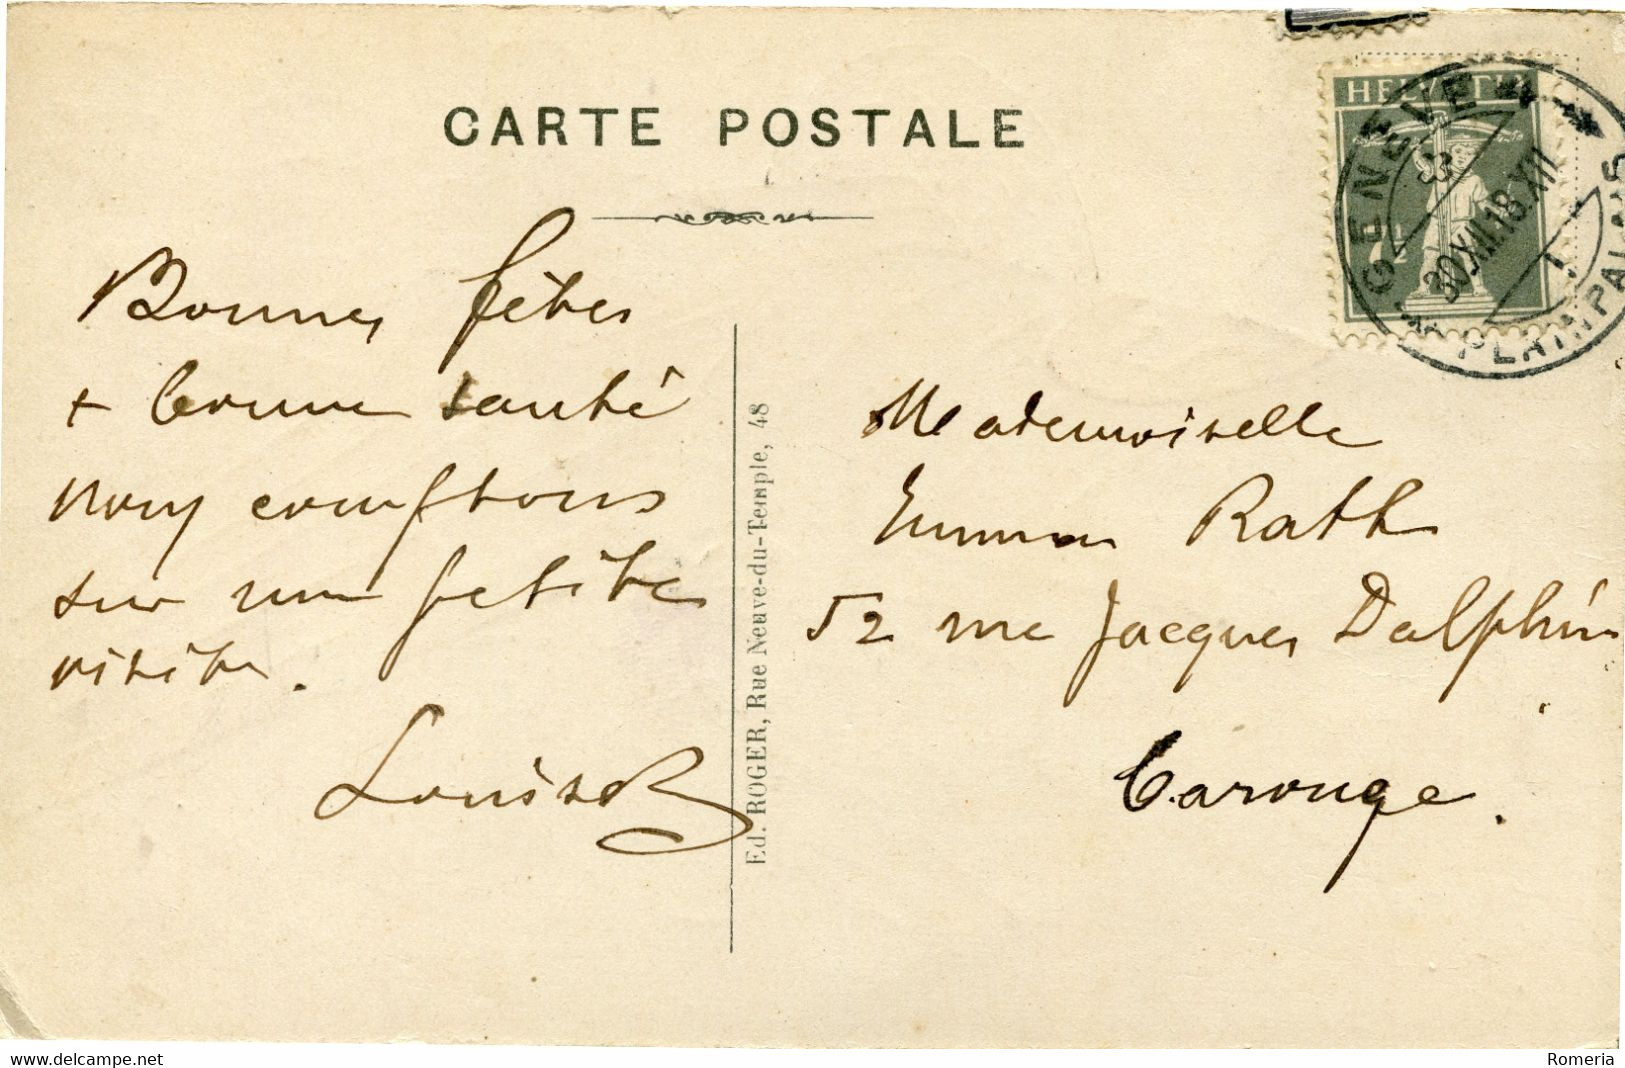 CARTE POSTALE
HELVETIA
7½
GENÈVE
30.XII.18.XII
PLAINPALAIS
Bonnes fêtes
+ bonne santé
nous comptons
sur une petite
visite.
Louise R
Ed. ROGER, Rue Neuve-du-Temple, 48
Mademoiselle
Emma Rath
52 rue Jacques Dalphin
Carouge.
www.delcampe.net
Romeria